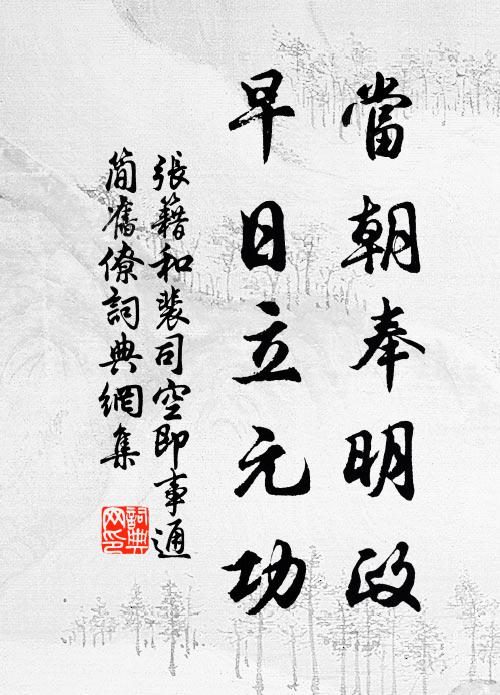 當朝奉明政
早日立元功
張籍和裴司空即事通
簡舊僚詞典網集
詞典
网印